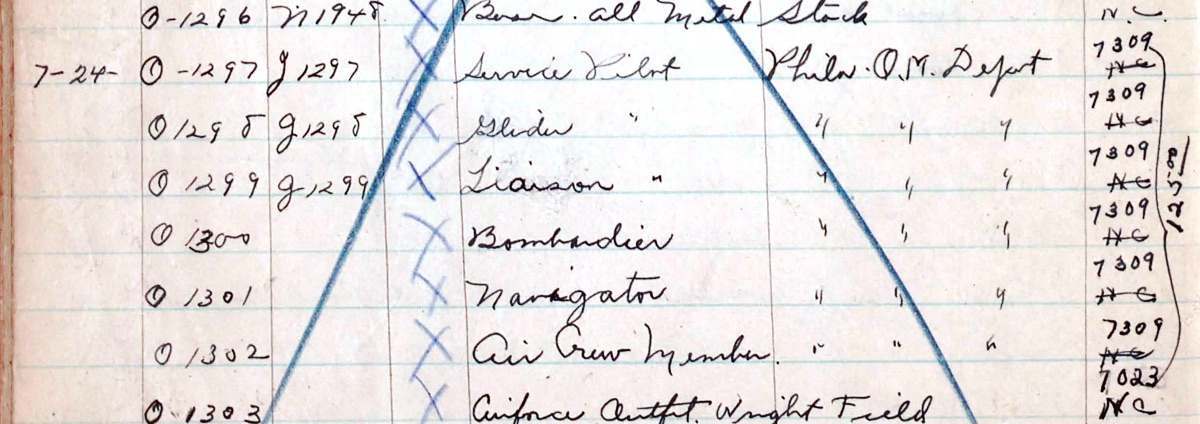 O-1296 N1948 X all Metal Stock N.C.
7309
7-24- O-1297 J1297 X Service Pilot Phila. Q.M. Depot NC
7309
O 1298 J1298 X Glider " " " " NC
7309
O 1299 J1299 X Liaison " " " " NC
7309 125.00
O 1300 X Bombardier " " " NC
7309
O 1301 X Navigator " " " NC
7309
O 1302 X Air Crew Member. " " " NC
7023
O 1303 X Airforce Outfit. Wright Field NC